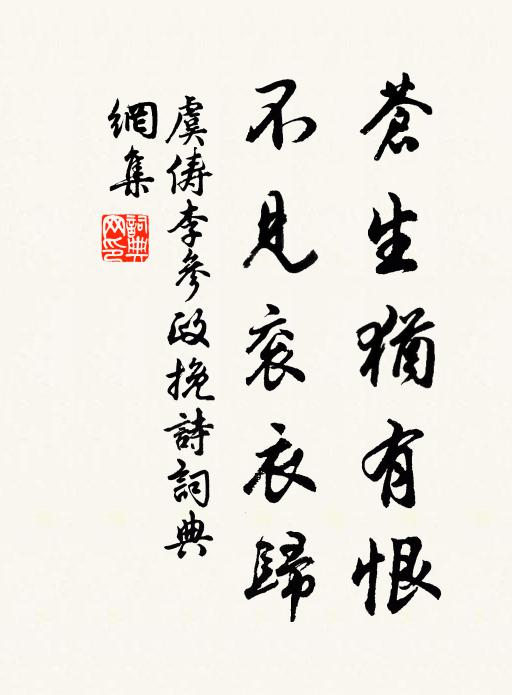 蒼生猶有恨
不見衮衣歸
虞儔李參政挽詩詞典
網集
詞典網印